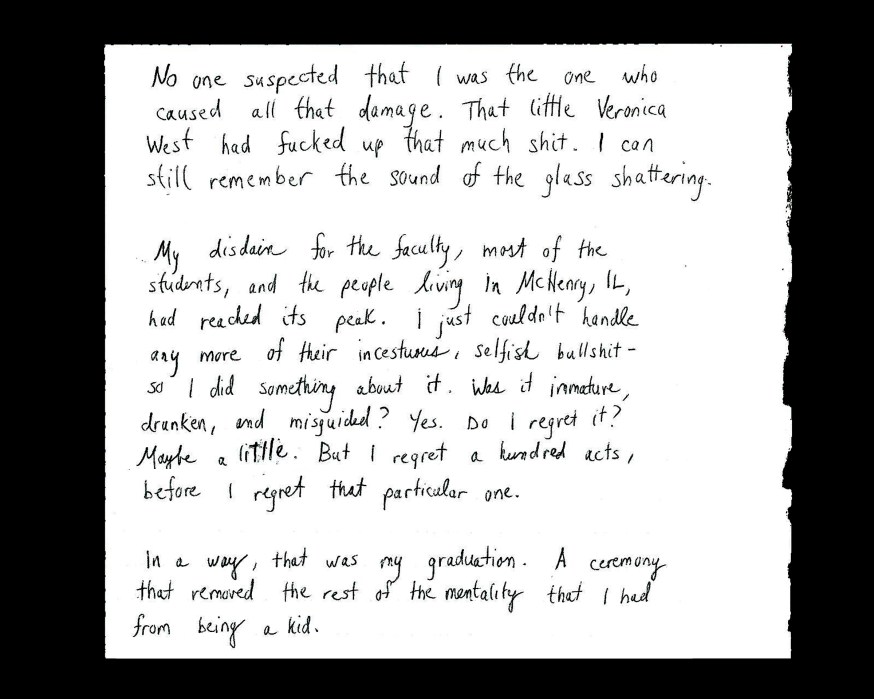 No one suspected that I was the one who
caused all that damage. That little Veronica
West had fucked up that much shit. I can
still remember the sound of the glass shattering.
My disdain for the faculty, most of the
students, and the people living in McHenry, IL,
had reached its peak. I just couldn't handle
any more of their incestuous, selfish bullshit-
so I did something about it. Was it immature,
drunken, and misguided? Yes. Do I regret it?
Maybe a little. But I regret a hundred acts,
before I regret that particular one.
In a way, that was my graduation. A ceremony
that removed the rest of the mentality that I had
from being a kid.